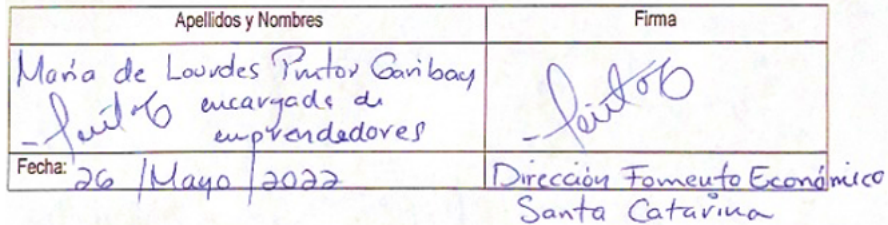 Apellidos y Nombres
Firma
María de Lourdes Pintor Garibay
encargada de
emprendedores
Fecha: 26 /Mayo /2022
Dirección Fomento Económico
Santa Catarina